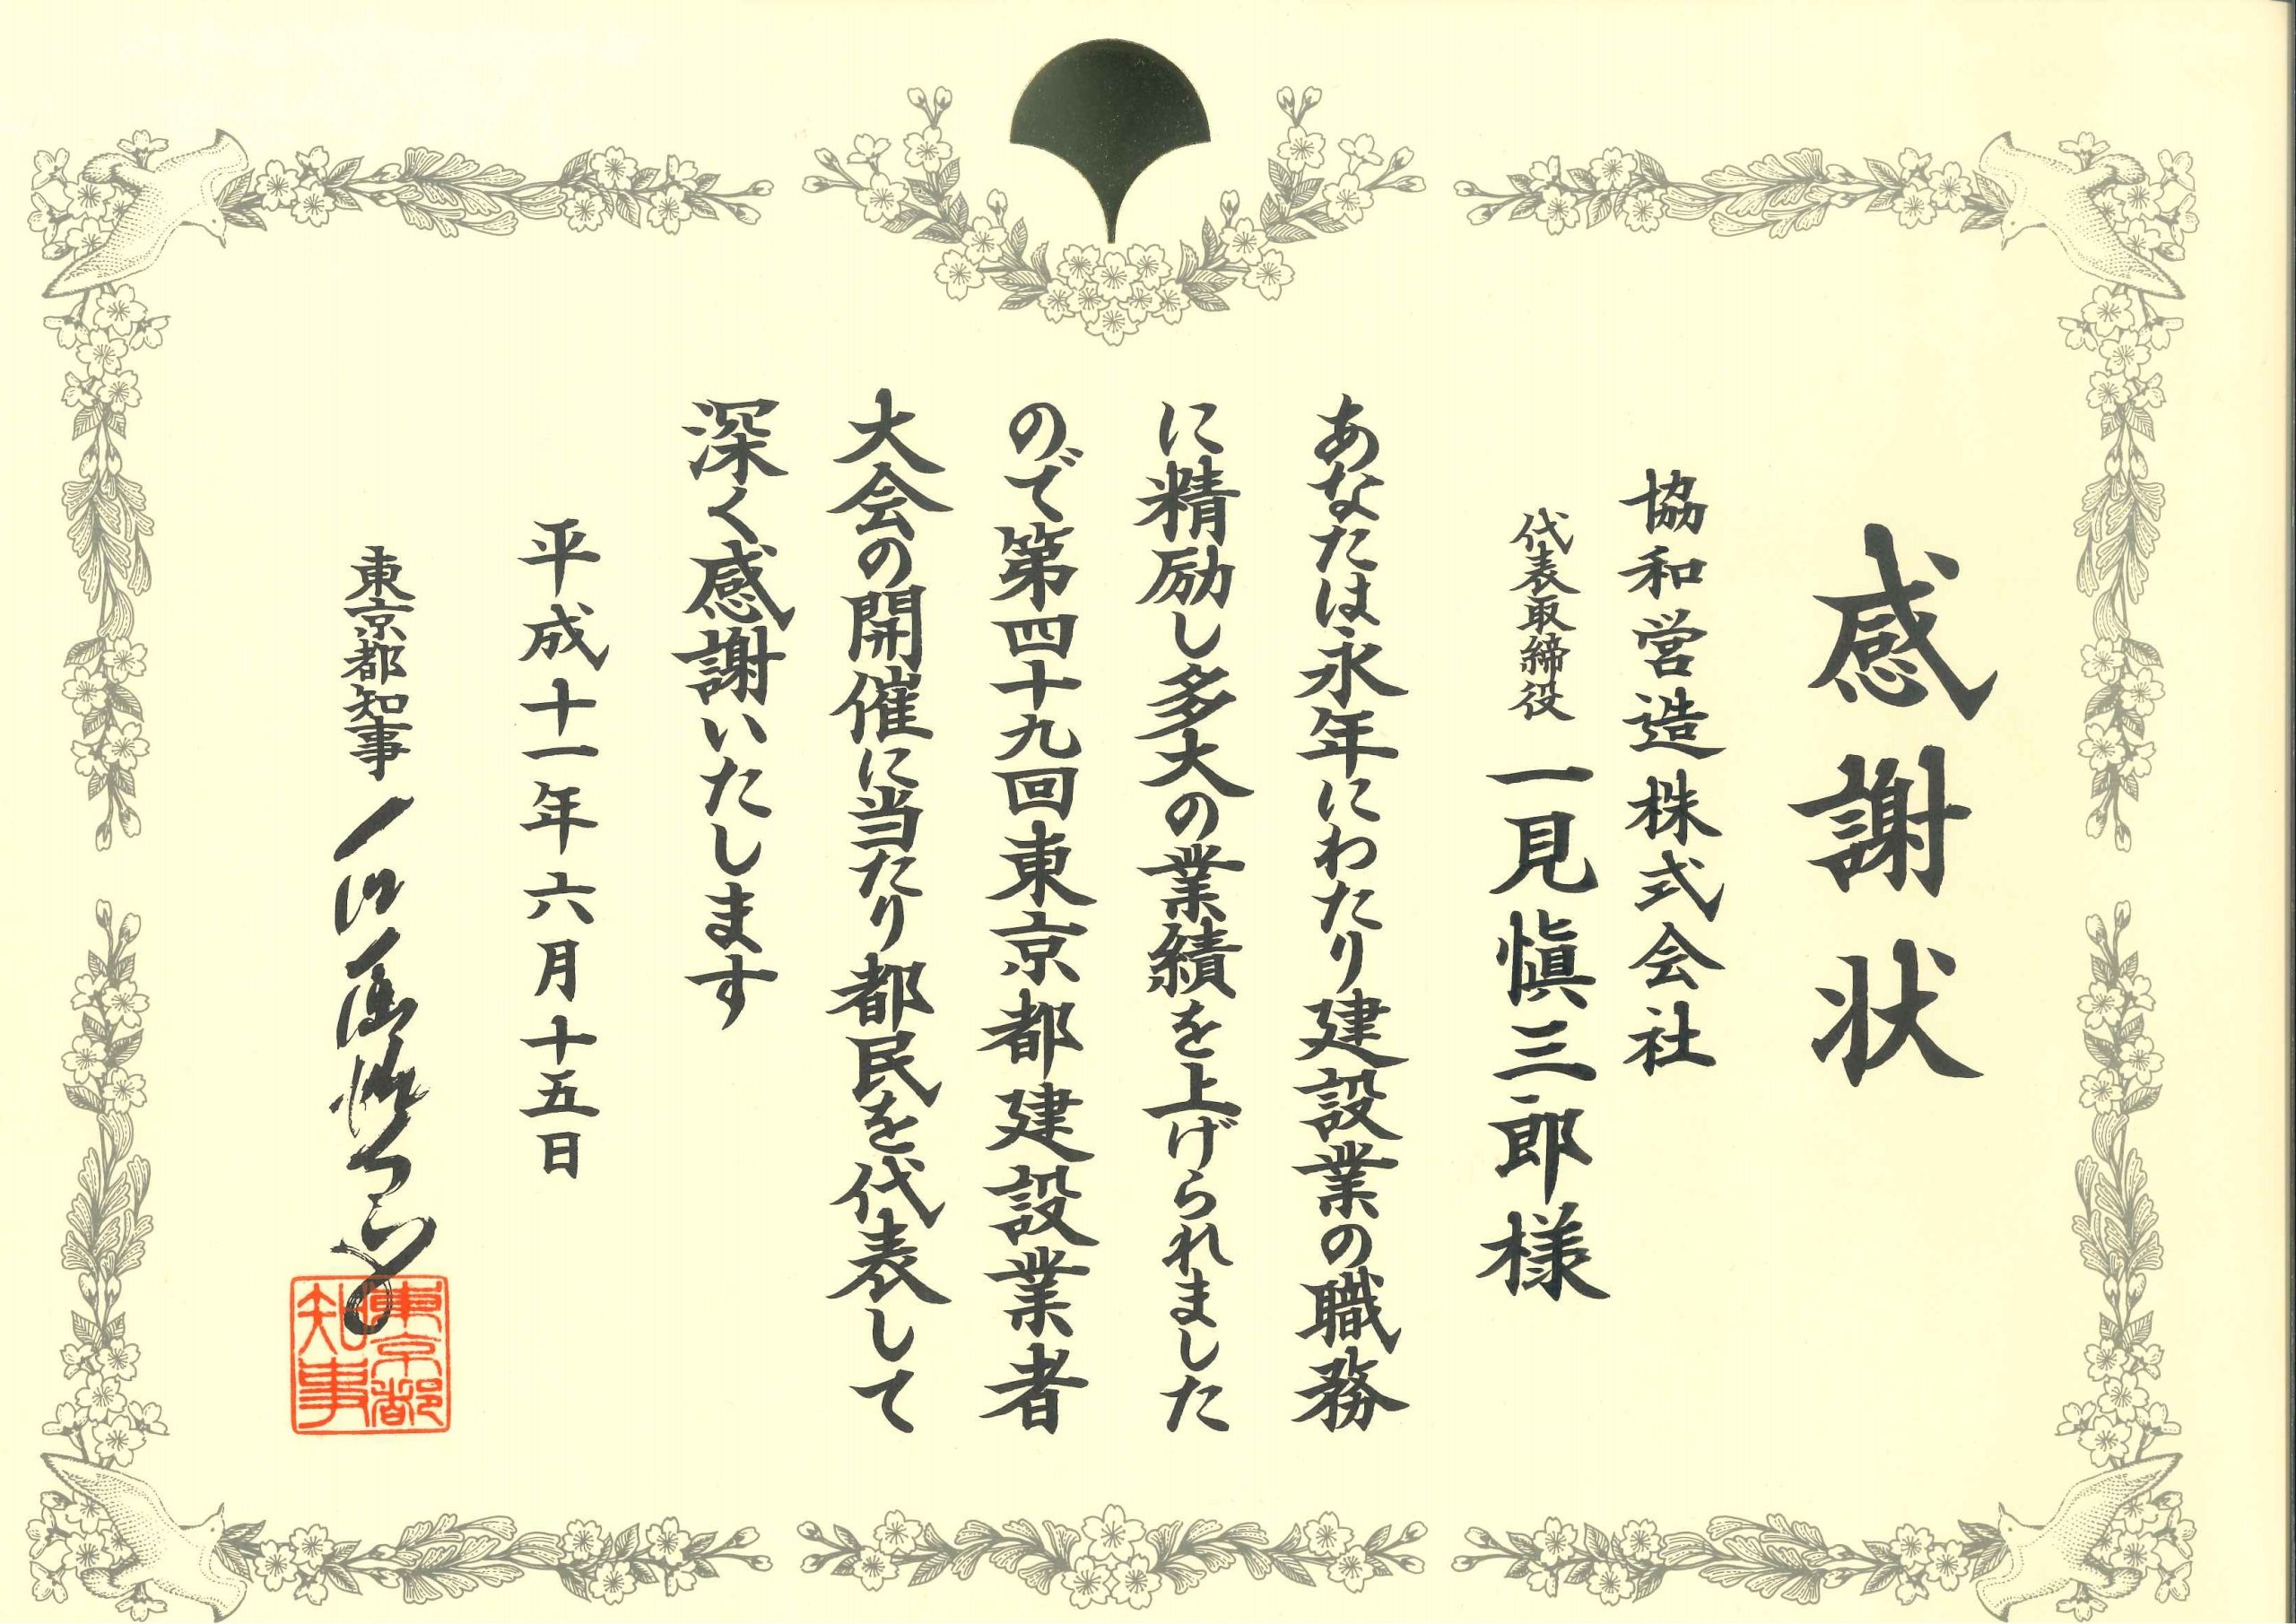 感謝状
協和営造株式会社
代表取締役 一見愼三郎様
あなたは永年にわたり建設業の職務
に精励し多大の業績を上げられました
ので第四十九回東京都建設業者
大会の開催に当たり都民を代表して
深く感謝いたします
平成十一年六月十五日
東京都知事
東京都
知事